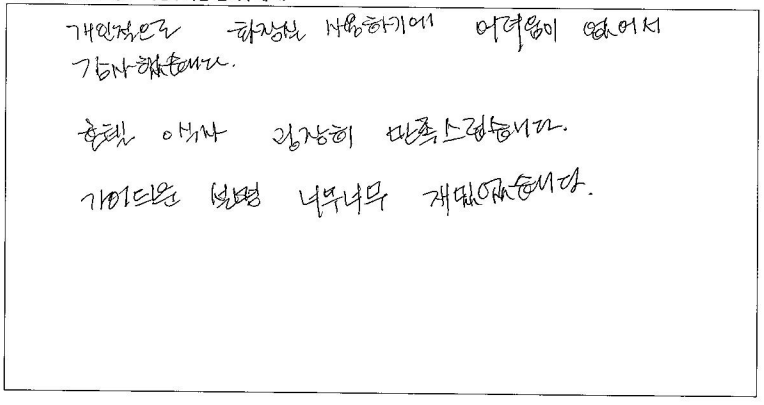 개인적으로 화장실 사용하기에 어려움이 없어서
감사했습니다.
호텔 식사 굉장히 만족스럽습니다.
가이드분 설명 너무너무 재밌었습니다.